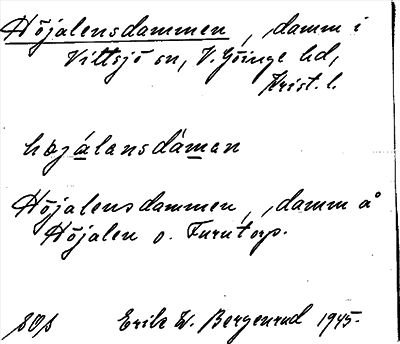 Höjalensdammen, damm i
Vittsjö sn, V. Göinge hd,
Krist. l.
højálansdàman
Höjalensdammen, damm å
Höjalen o. Furutorp.
Erik W. Bergenrud 1945.